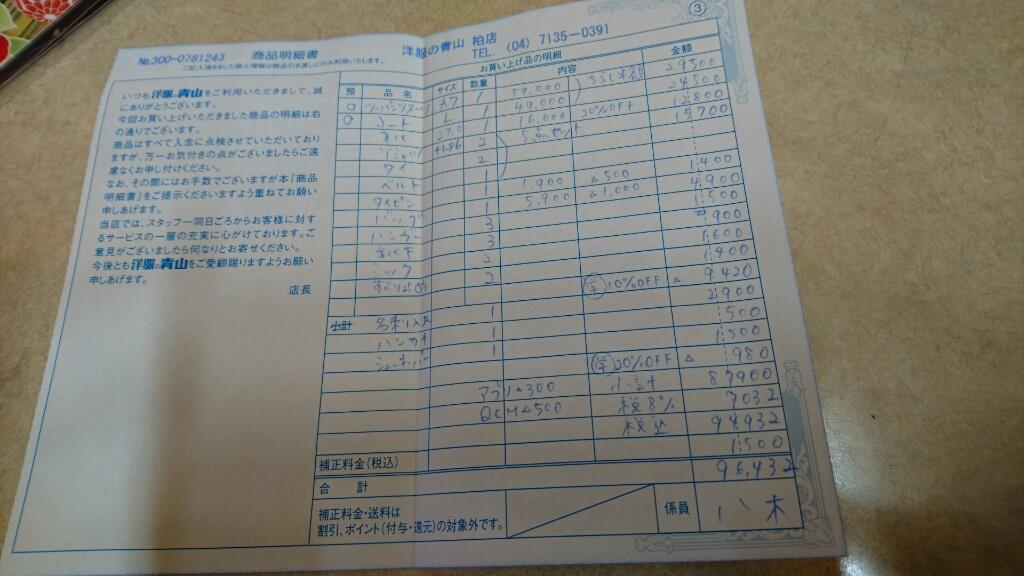 ③
№300-0781243 商品明細書
洋服の青山 柏店
TEL. (04) 7135-0391
ご記入頂きました個人情報は商品引き渡しにのみ利用いたします。
いつも洋服の青山をご利用いただきまして、誠
にありがとうございます。
今回お買い上げいただきました商品の明細は右
の通りでございます。
商品はすべて入念に点検させていただいており
ますが、万一お気付きの点がございましたらご遠
慮なくお申し付けください。
なお、その際にはお手数でございますが本「商品
明細書」をご提示くださいますよう重ねてお願い
申しあげます。
当店では、スタッフ一同日ごろからお客様に対す
るサービスの一層の充実に心がけております。ご
意見がございましたら何なりとお寄せください。
今後とも洋服の青山をご愛顧賜りますようお願い
申しあげます。
店長
お買い上げ品の明細
預 品名 サイズ 数量 内容 金額
1 59,000 29500
コート L 1 49,000 24500
27.0 1 16,000 20%OFF 12800
41-86 2 15,700
タイ 2
ベルト 1
タイピン 1 1,900 △500 1,400
バッグ 1 5,900 △1,000 4,900
ハンガー 3 1,500
3 900
2 1,600
2 1,400
10%OFF △ 9420
小計 1 2,900
ハンカチ 1 500
1 1,500
20%OFF △ 980
アプリ△300 小計 87900
△500 税8% 7032
税込 94932
補正料金(税込) 1,500
合計 96,432
補正料金・送料は
割引、ポイント(付与・還元)の対象外です。
係員 八木